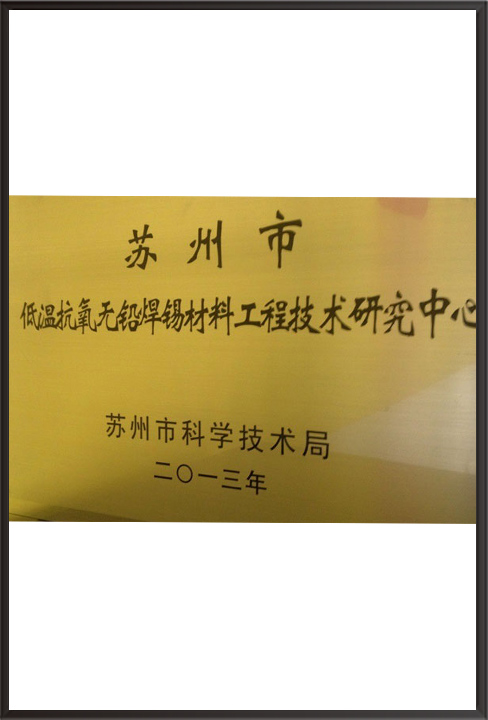 苏州市
低温抗氧无铅焊锡材料工程技术研究中心
苏州市科学技术局
二〇一三年